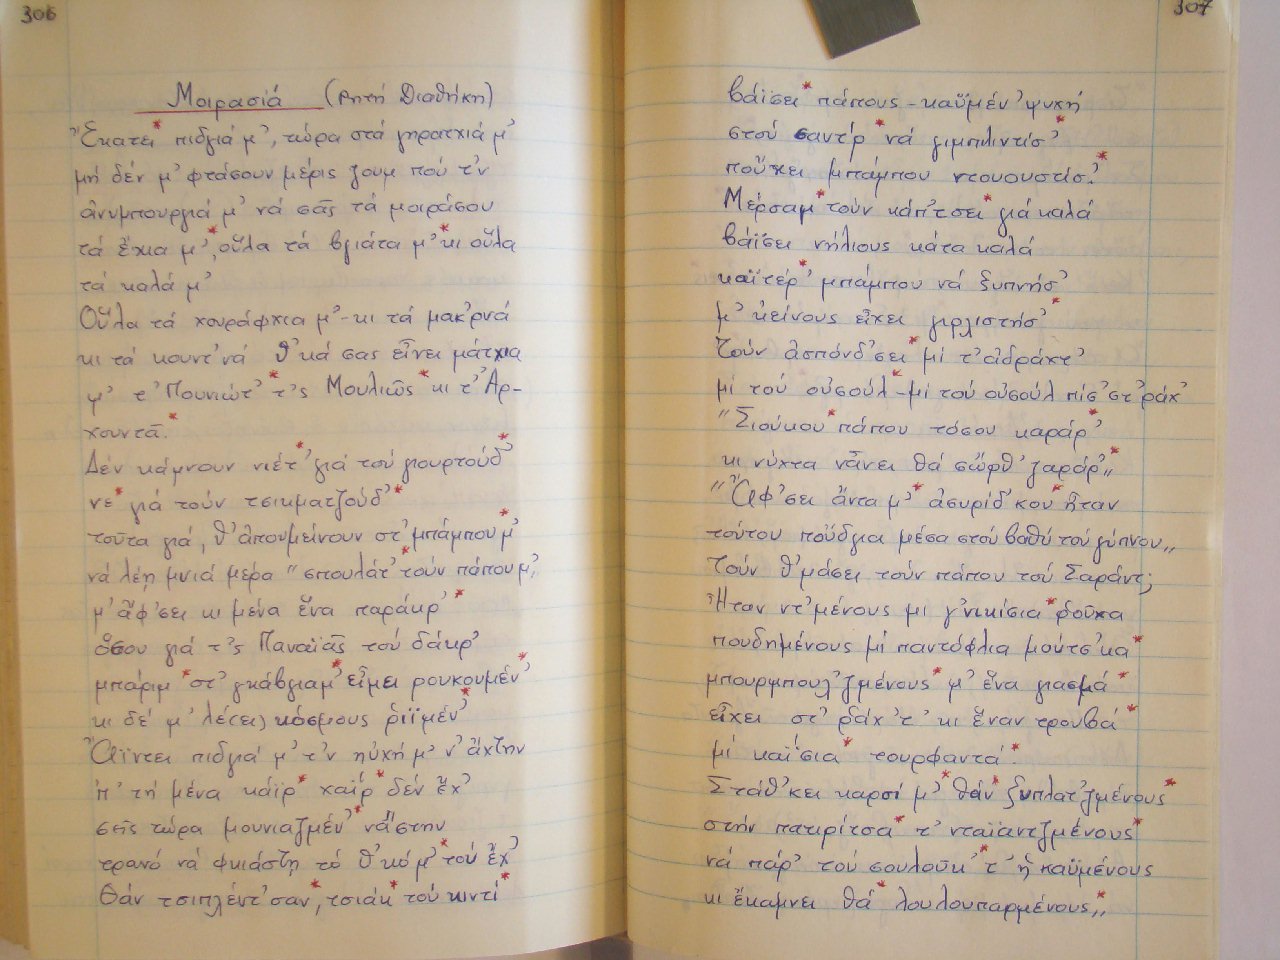 306
Μοιρασιά (Ρητή Διαθήκη)
Ἕκατει* πιδγιά μ', τώρα στά γηρατχιά μ'
μή δέν μ' φτάσουν μέρις ζουμ πού τ'ν
ἀνυμπουργιά μ' νά σᾶς τά μοιράσου
τά ἔχια μ'*, οὗλα τά βγιάτα μ'* κι οὗλα
τά καλά μ'
Οὗλα τά χουράφχια μ' - κι τά μακ'ρνά
κι τά κουντ'νά θ'κά σας εἶνει μάτχια
μ' τ' Πουνιώτ'* τ'ς Μουλιῶς* κι τ' Ἀρ-
χουντᾶ.*
Δέν κάμνουν νιέτ'* γιά τού γιουρτούδ'*
νε* γιά τούν τσικματζούδ'*
τοῦτα γιά, θ' ἀπουμείνουν στ' μπάμπου μ'*
νά λέῃ μνιά μέρα "σπουλάτ'* τούν πάπου μ',,
μ' ἄφ'σει κι μένα ἕνα παράκρ'*
ὅσου γιά τ'ς Παναϊᾶς τού δάκρ'
μπάριμ* στ' γκάβγιαμ'* εἶμει ρουκουμέν'*
κι δέ μ' λέ(ει) κόσμους ῥιϊμέν'*
Ἄϊντει πιδγιά μ' τ'ν ηὐχή μ' ν' ἄχτην
π' τή μένα κάϊρ'* χαΐρ'* δέν ἔχ'
σεῖς τώρα μουνιαζμέν'* νἄστην
τρανό νά φκιάστῃ τό θ'κό μ'* τού ἔχ'
Θάν τσιπλέντ'σαν*, τσιάκ* τού κιντί*
307
βάϊσει* πάπους - καϋμέν' ψυχή
στού σαντέρ* νά γιμπλιντίσ'*
ποὔχει μπάμπου ντουουστίσ'.*
Μέρσαμ* τούν κάπ'τσει* γιά καλά
βάϊσει νήλιους κάτα καλά
καϊτέρ'* μπάμπου νά ξυπνήσ'
μ' κείνους εἶχει γιρλιστήσ'*
Τούν ἀσπόνδ'σει* μί τ' ἀδράχτ'
μί τού οὐσούλ* - μί τού οὐσούλ πίσ' στ' ράχ'
"Σιούκου* πάπου τόσου καράρ'*
κι νύχτα νἄνει θά σὥρθ' ζαράρ'*,,
"Ἄφ'σει ἄντα μ'* ἀσυρίδ'κου* ἦταν
τούτου ποὔδγια μέσα στού βαθύ τού γύπνου,,
Τούν θ'μάσει τούν πάπου τού Σαράντ;
Ἦταν ντ'μένους μι γ'νικίσια* ῥοῦχα
πουδημένους μί παντόφλια μούτσ'κα*
μπουρμπουλ'ζμένους* μ' ἕνα γιασμά*
εἶχει στ' ράχ' τ' κι ἕναν τρουβά*
μί καΐσια* τουρφαντά.*
Στάθ'κει καρσί μ'* θάν* ξυπλατ'ζμένους*
στήν πατιρίτσα* τ' νταϊαντζμένους*
νά πάρ' τού σουλούκ'* τ' ἡ καϋμένους
κι ἔκαμνει θά* λουλουπαρμένους,,*